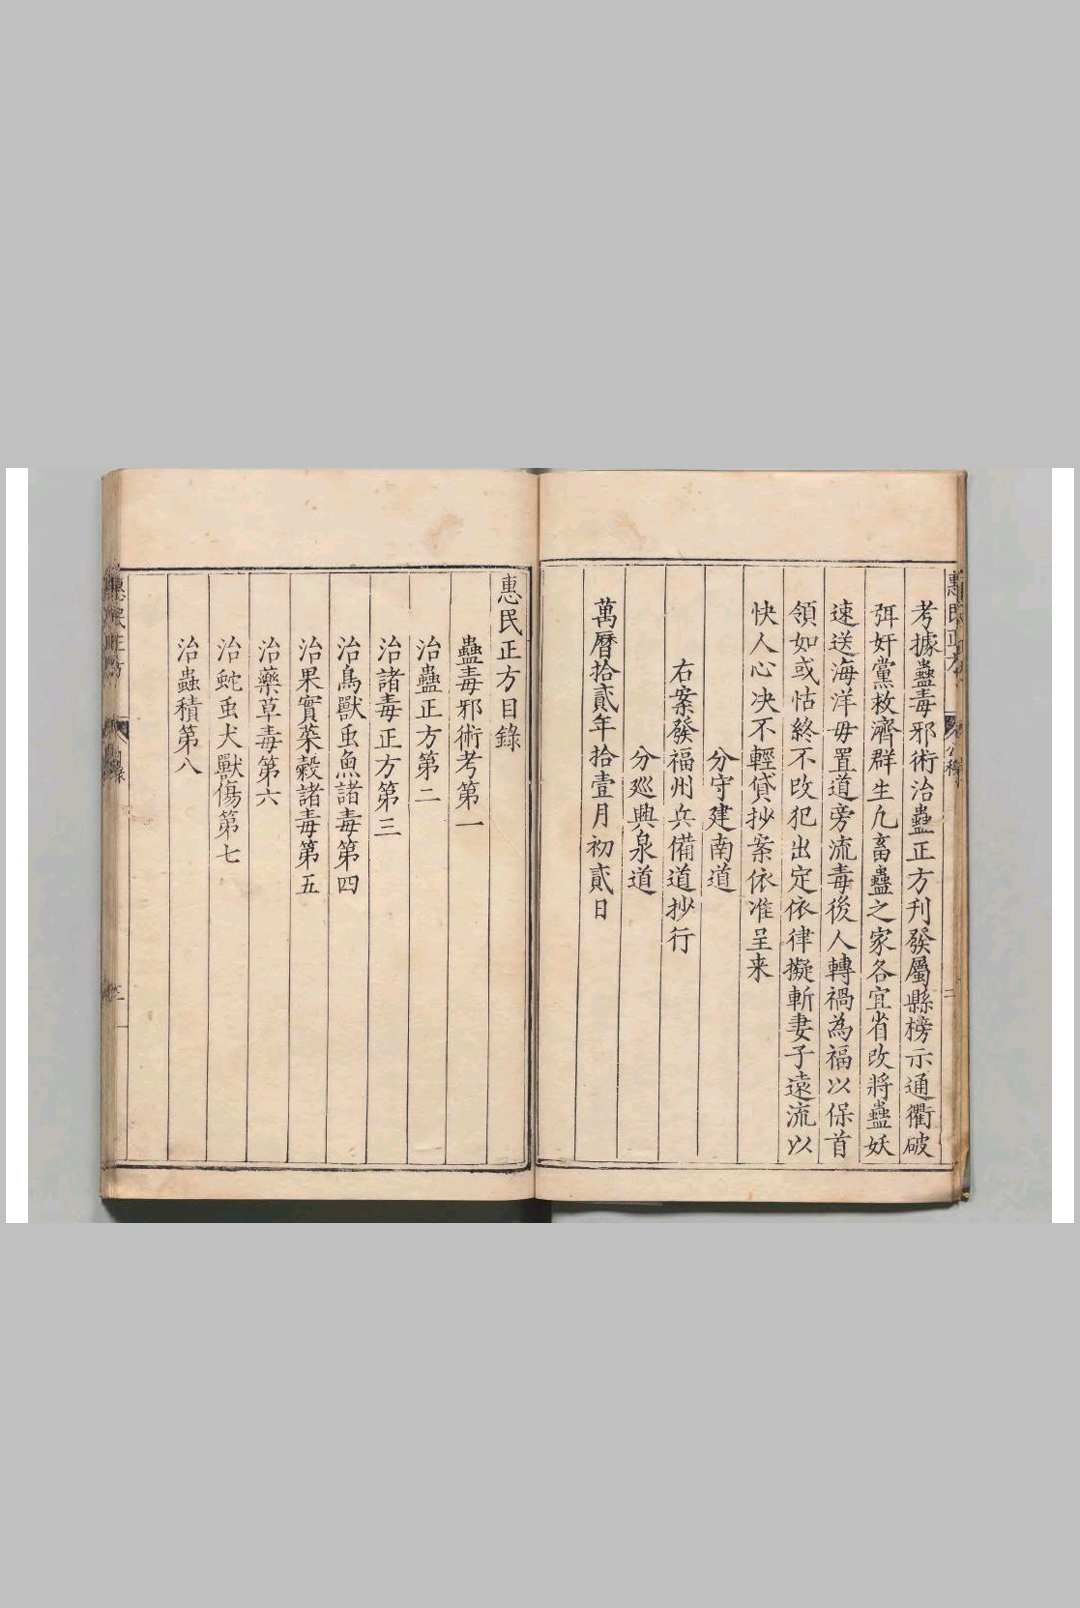 考據蠱毒邪術治蠱正方刋發屬縣榜示通衢破
弭奸黨救濟群生凢畜蠱之家各宜省改將蠱妖
速送海洋毋置道旁流毒後人轉禍為福以保首
領如或怙終不改犯出定依律擬斬妻子遠流以
快人心决不輕貸抄案依准呈来
分守建南道
右案發福州兵備道抄行
分廵興泉道
萬曆拾貳年拾壹月初貳日
惠民正方目錄
蠱毒邪術考第一
治蠱正方第二
治諸毒正方第三
治鳥獸虫魚諸毒第四
治果實菜榖諸毒第五
治藥草毒第六
治蛇虫犬獸傷第七
治蟲積第八